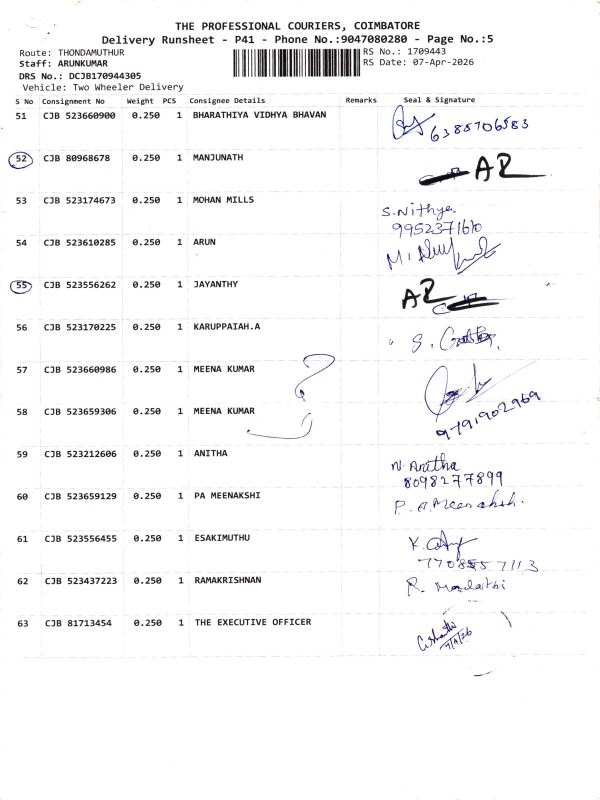 THE PROFESSIONAL COURIERS, COIMBATORE
Delivery Runsheet - P41 - Phone No.:9047080280 - Page No.:5
Route: THONDAMUTHUR RS No.: 1709443
Staff: ARUNKUMAR RS Date: 07-Apr-2026
DRS No.: DCJB170944305
Vehicle: Two Wheeler Delivery
S No Consignment No Weight PCS Consignee Details Remarks Seal & Signature
51 CJB 523660900 0.250 1 BHARATHIYA VIDHYA BHAVAN 6385706583
52 CJB 80968678 0.250 1 MANJUNATH AR
53 CJB 523174673 0.250 1 MOHAN MILLS S.Nithya
9952371610
54 CJB 523610285 0.250 1 ARUN
55 CJB 523556262 0.250 1 JAYANTHY AR
56 CJB 523170225 0.250 1 KARUPPAIAH.A S.
57 CJB 523660986 0.250 1 MEENA KUMAR
58 CJB 523659306 0.250 1 MEENA KUMAR 9791902969
59 CJB 523212606 0.250 1 ANITHA N. Anitha
8098277899
60 CJB 523659129 0.250 1 PA MEENAKSHI P. A. Meenakshi.
61 CJB 523556455 0.250 1 ESAKIMUTHU K.
7708557113
62 CJB 523437223 0.250 1 RAMAKRISHNAN R.
63 CJB 81713454 0.250 1 THE EXECUTIVE OFFICER
7/4/26